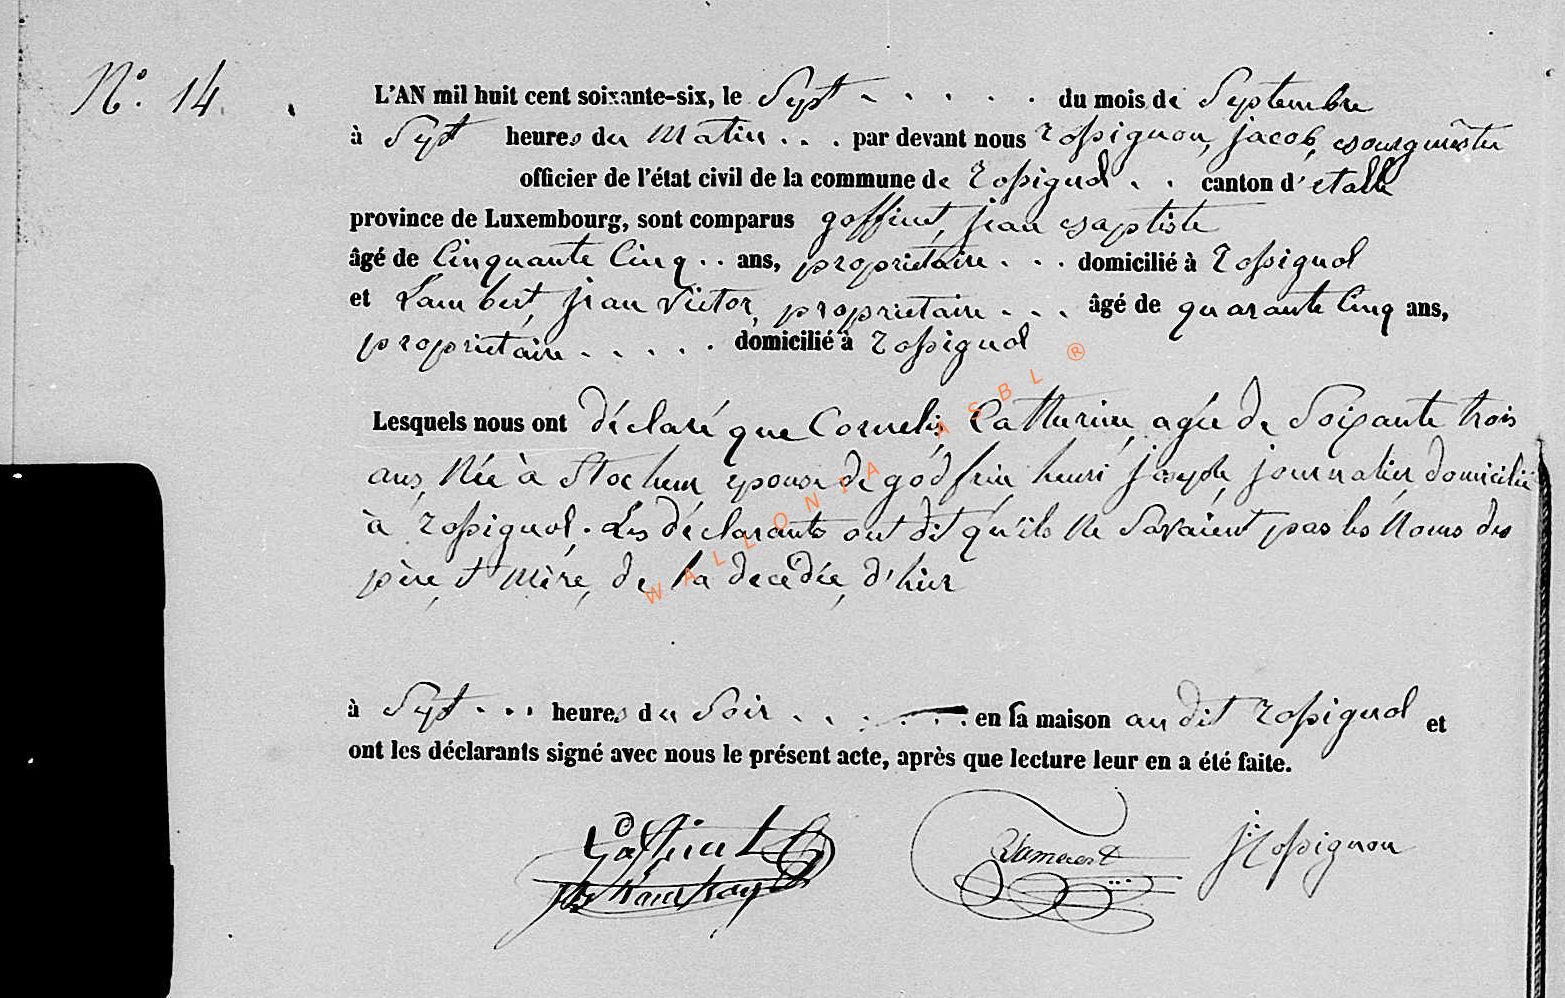 N.º 14.
L'AN mil huit cent soixante-six, le Sept . . . . . du mois de Septembre
à Sept heures du Matin . . . par devant nous rossignon, jacob, bourgmestre
officier de l'état civil de la commune de rossignol . . canton d'étalle
province de Luxembourg, sont comparus goffinet, jean baptiste
âgé de Cinquante Cinq . . ans, propriétaire . . . domicilié à rossignol
et Lambert, jean victor, propriétaire . . . âgé de quarante Cinq ans,
propriétaire . . . . . domicilié à rossignol
Lesquels nous ont déclaré que Cornelis, Catherine, agée de Soixante trois
ans, Née à Stockem, épouse de godfrin, henri joseph, journalier, domicilié
à rossignol. Les déclarants ont dit qu'ils Ne Savaient pas les Noms des
père, et Mère, de la decédée, d'hier
à Sept . . . heures du Soir . . . . . . en sa maison au dit rossignol et
ont les déclarants signé avec nous le présent acte, après que lecture leur en a été faite.
Goffinet Lambert J Rossignon
WALLONIA ASBL ®